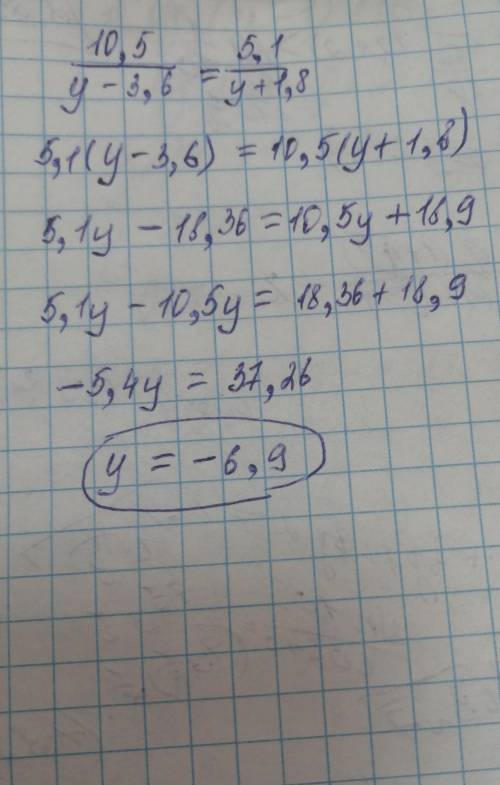 10,5/(y-3,6) = 5,1/(y+1,8)
5,1(y-3,6) = 10,5(y+1,8)
5,1y - 18,36 = 10,5y + 18,9
5,1y - 10,5y = 18,36 + 18,9
-5,4y = 37,26
y = -6,9